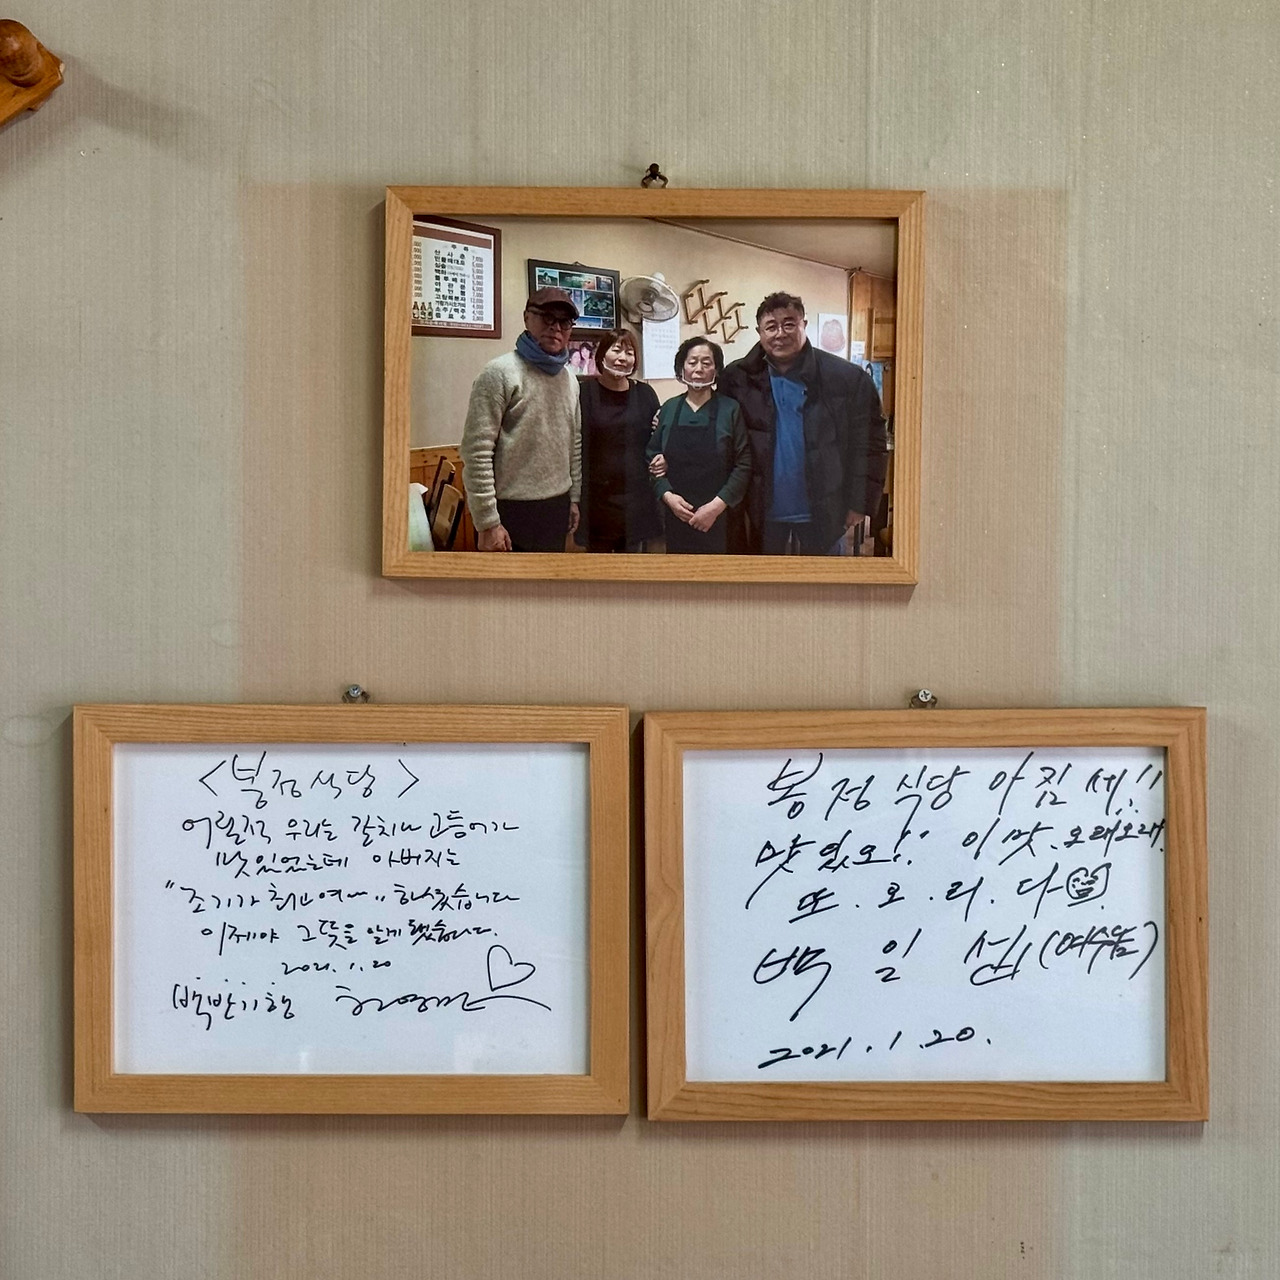 주류
산사춘
소주/맥주
음료수
<봉정식당>
어릴적 우리는 갈치나 고등어가
맛있었는데 아버지는
"조기가 최고여~" 하셨습니다
이제야 그 뜻을 알게 됐습니다.
2021.1.20
백반기행 허영만
봉정식당 아짐세!!
맛있오!! 이 맛. 오래오래.
또.오.리.다~
백일섭(여수놈)
2021.1.20.